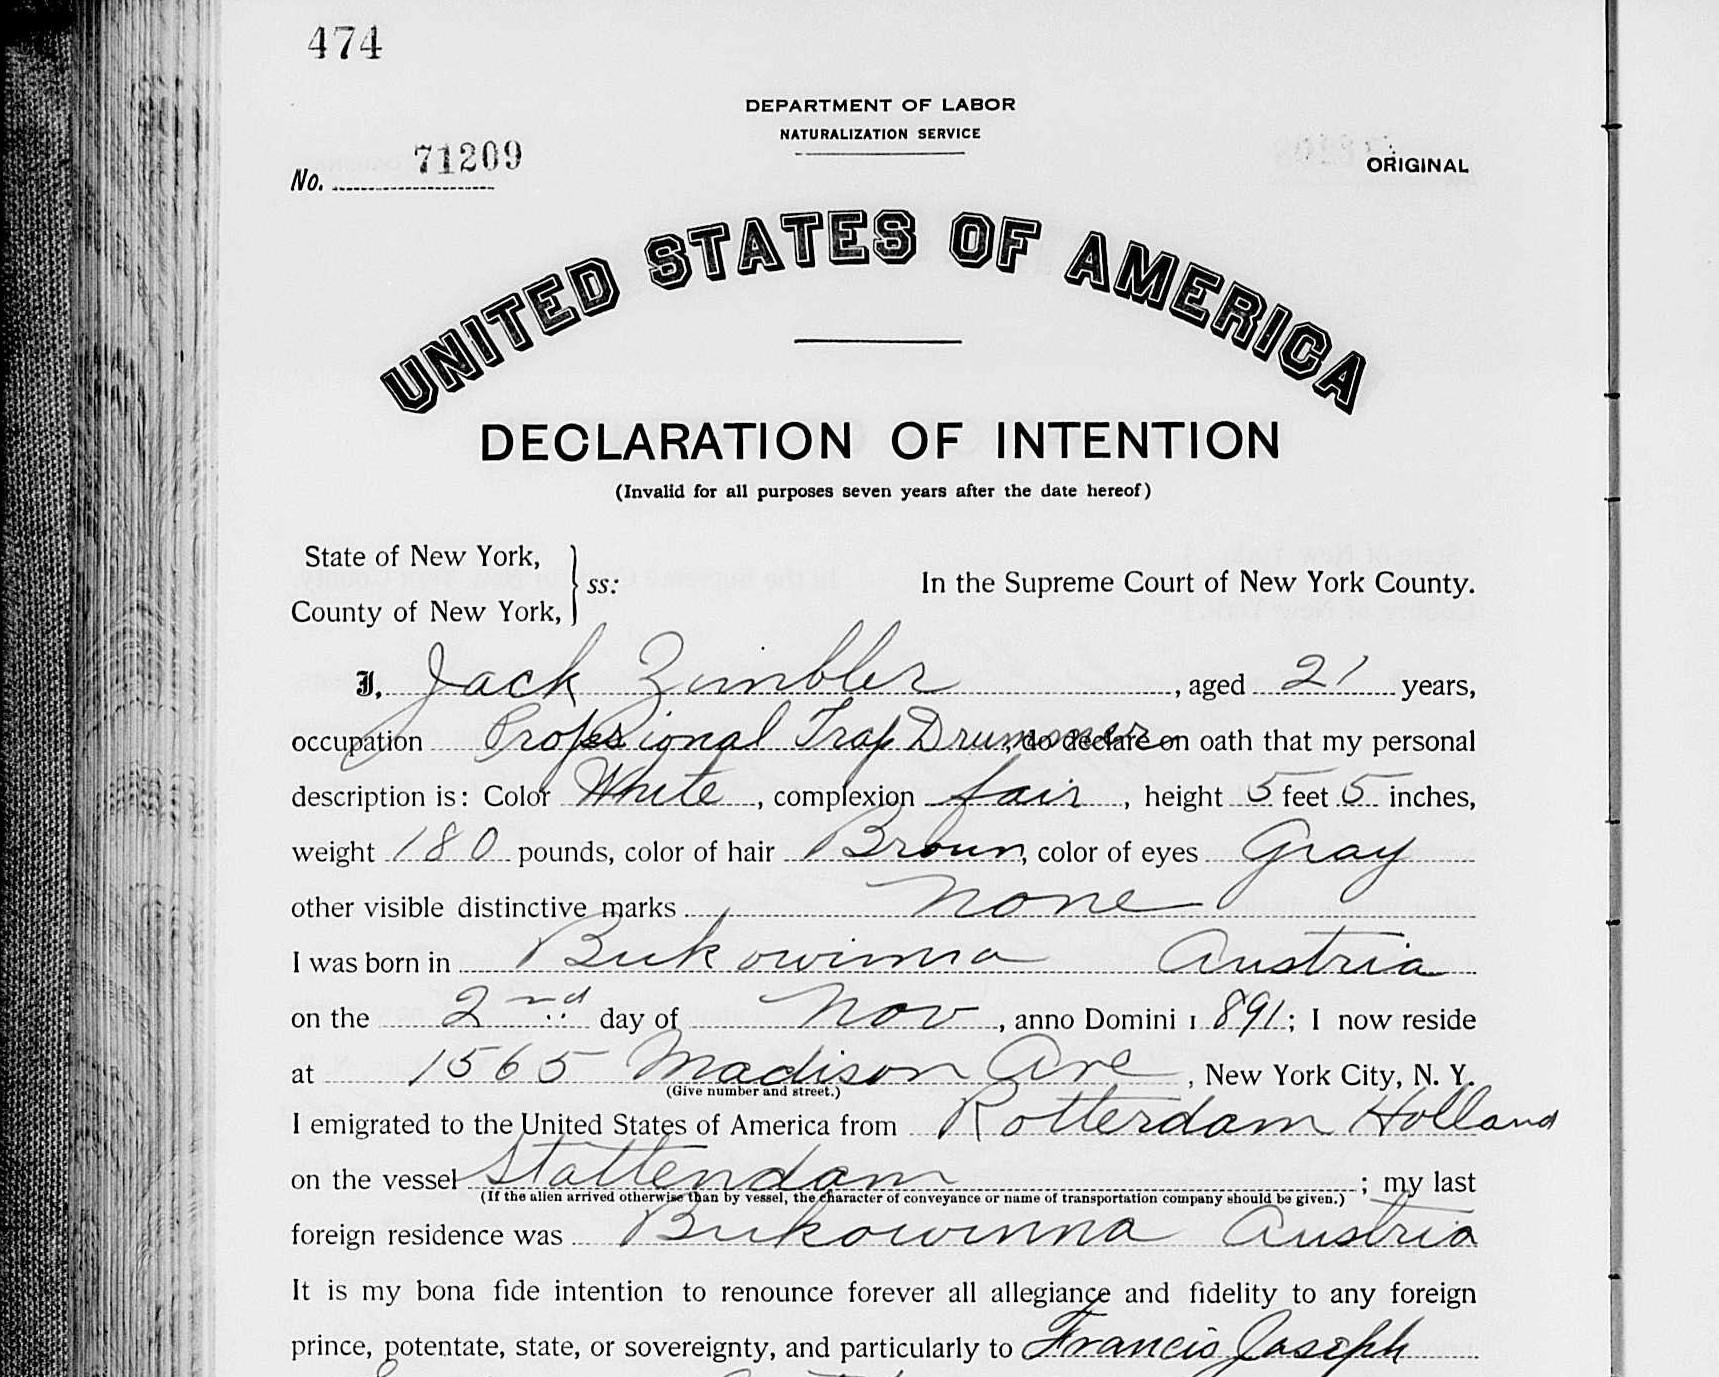 474
DEPARTMENT OF LABOR
NATURALIZATION SERVICE
No. 71209
ORIGINAL
UNITED STATES OF AMERICA
DECLARATION OF INTENTION
(Invalid for all purposes seven years after the date hereof)
State of New York,
County of New York,
ss:
In the Supreme Court of New York County.
I, Jack Zimbler, aged 21 years,
occupation Professional Trap Drummer, do declare on oath that my personal
description is: Color White, complexion fair, height 5 feet 5 inches,
weight 180 pounds, color of hair Brown, color of eyes Gray
other visible distinctive marks none
I was born in Bukowinna Austria
on the 2nd day of Nov, anno Domini 1891; I now reside
at 1565 Madison Ave, New York City, N. Y.
(Give number and street.)
I emigrated to the United States of America from Rotterdam Holland
on the vessel Stattendam; my last
(If the alien arrived otherwise than by vessel, the character of conveyance or name of transportation company should be given.)
foreign residence was Bukowinna Austria
It is my bona fide intention to renounce forever all allegiance and fidelity to any foreign
prince, potentate, state, or sovereignty, and particularly to Francis Joseph